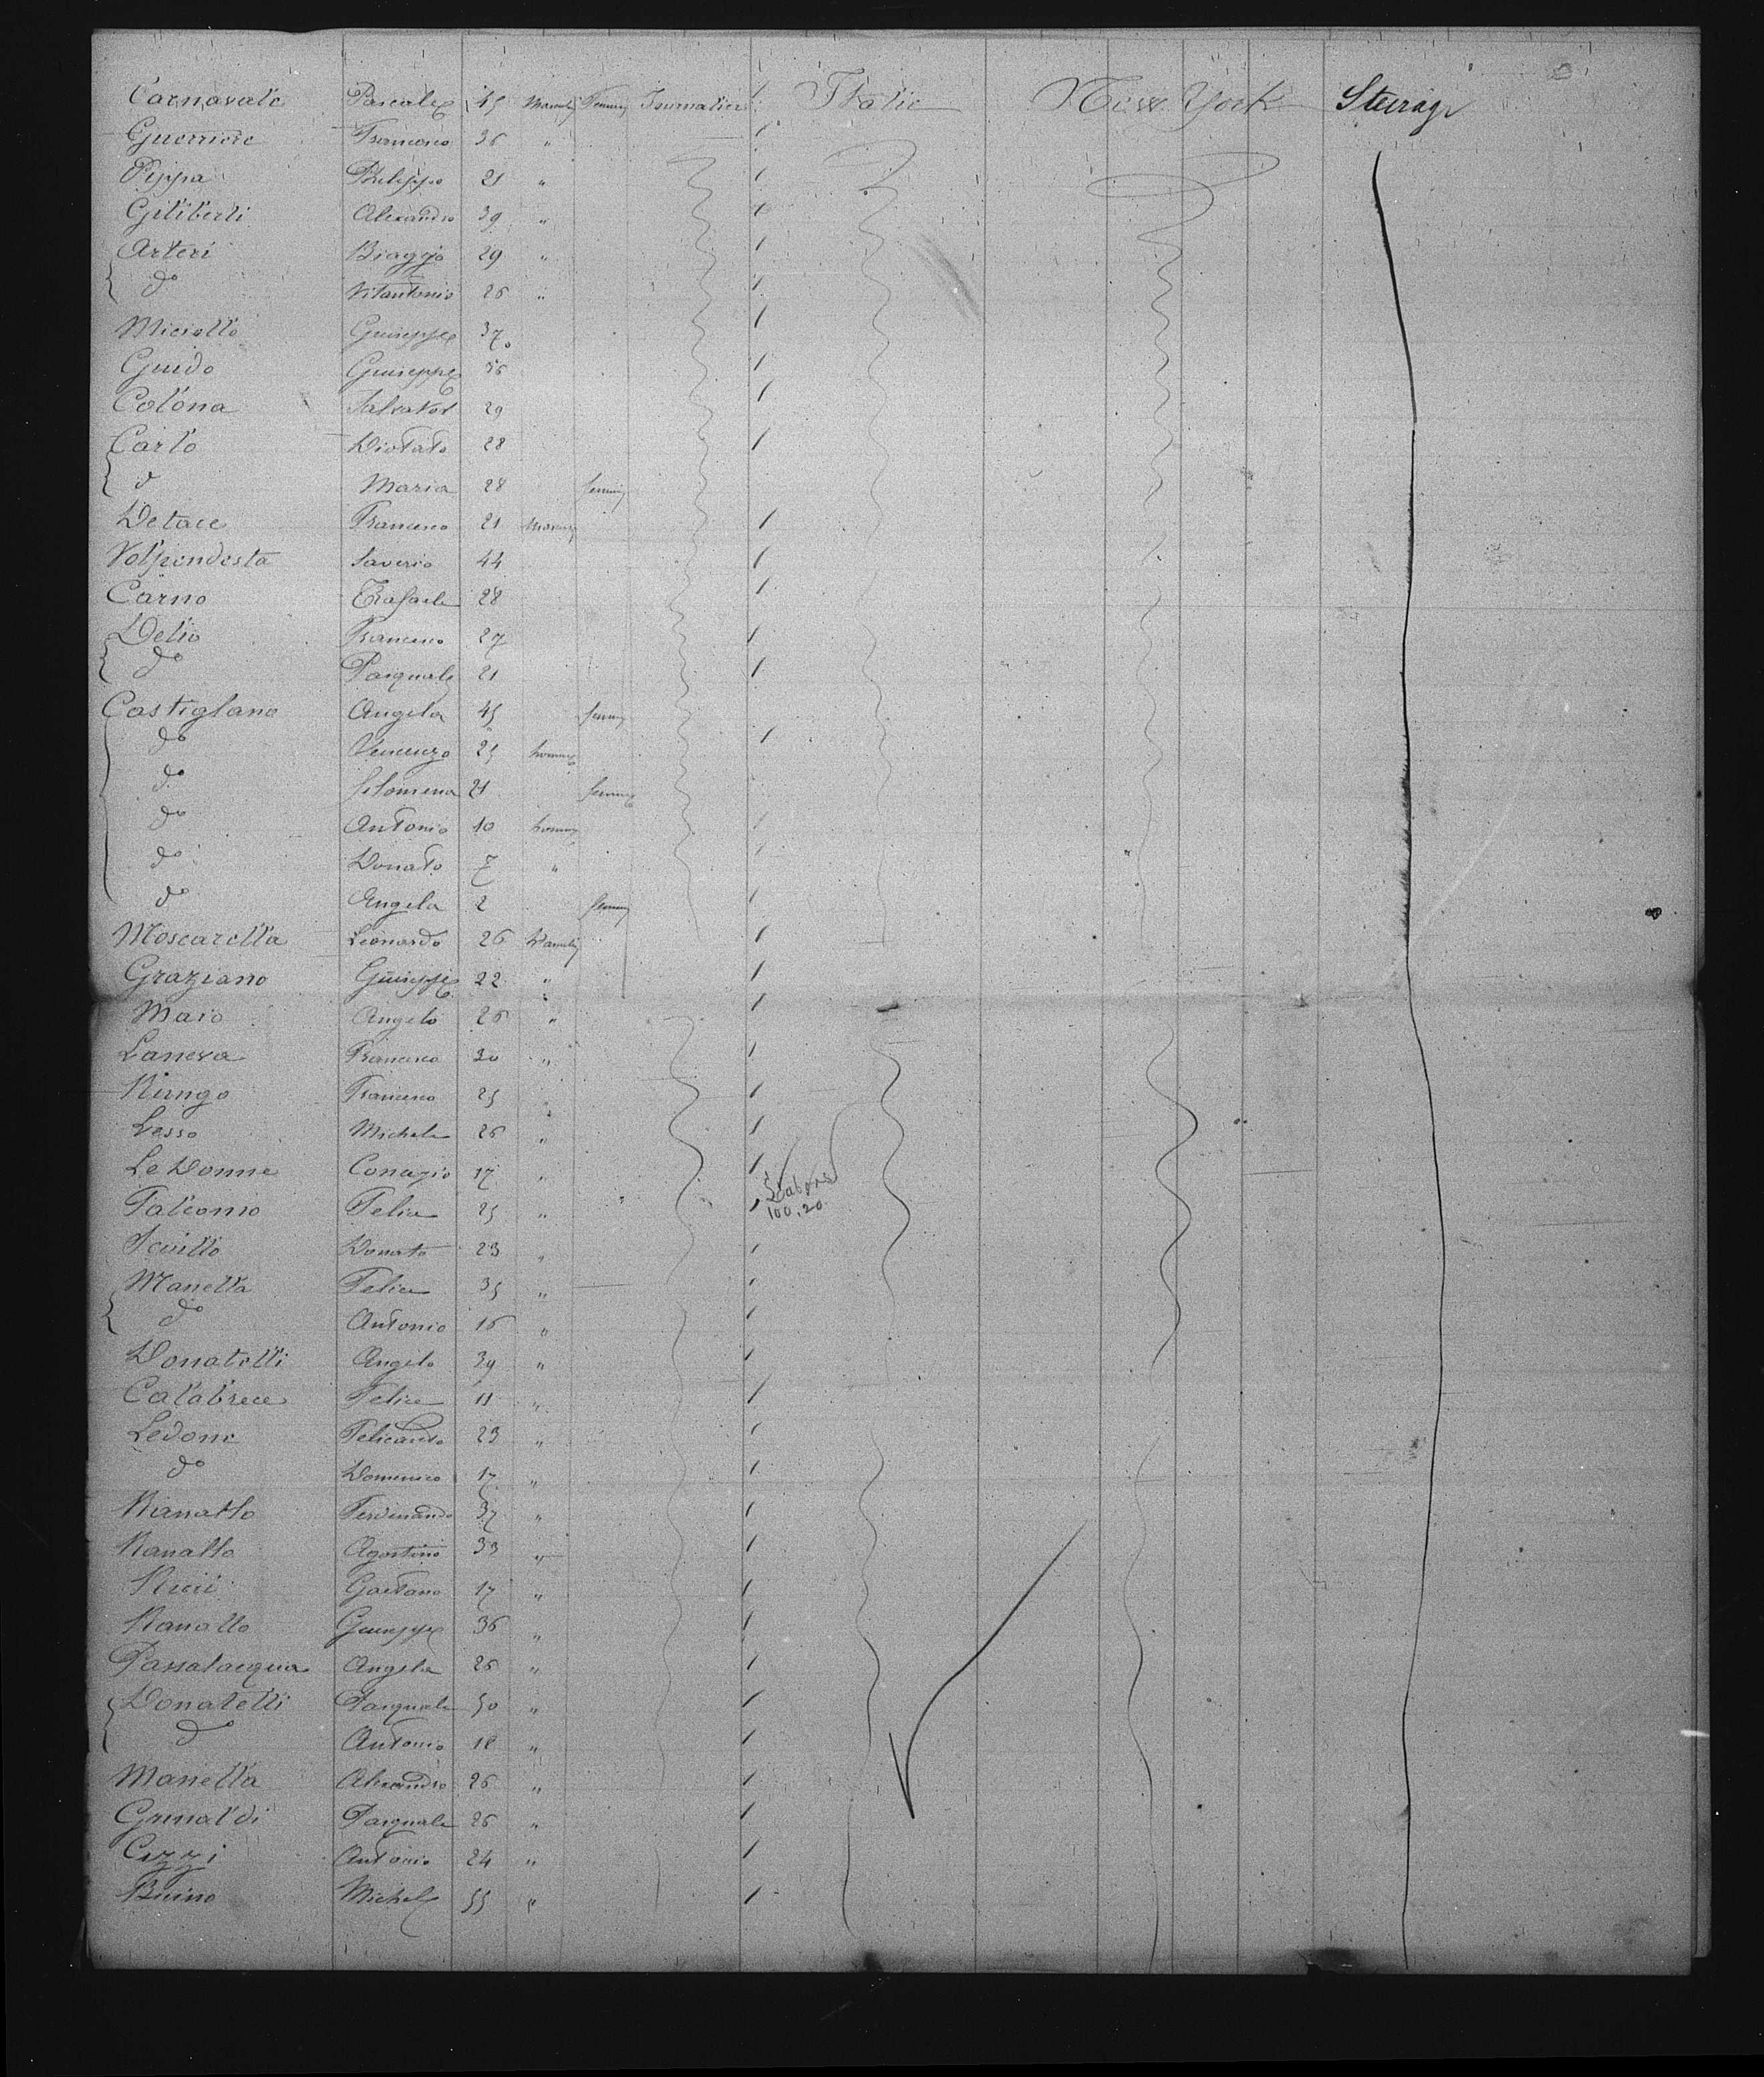 Carnavale Pascale 45 Masculin Feminin Journalier 1 Italie New York Steerage
Guerriere Francesco 36 "  1
Pippa Philippo 21 " 1
Giliberti Alexandro 39 " 1
Arteri Biaggio 29 " 1
do Vitantonio 26 " 1
Miciollo Guiseppe 37 1
Guido Guiseppe 56 1
Colona Salvator 29 1
Carlo Diotato 28 1
do Maria 28 feminin
Detace Francesco 21 Masculin 1
Volpendesta Saverio 44 1
Carno Rafaele 28 1
Delio Francesco 27 1
do Pasquale 21 1
Castiglano Angela 45 femme
do Vincenzo 25 homme 1
do filomena 21 femme
do Antonio 10 homme 1
do Donato 7 "
do Angela 2 femme 1
Moscarella Leonardo 26 Masculin 1
Graziano Guiseppe 22 " 1
Maio Angelo 26 " 1
Laneva Francesco 30 " 1
Nungo Francesco 25 " 1
Lesso Michele 26 " 1
Le Donne Conazio 17 " 1
Falconio Felice 25 " 1 Labore 100.20
Scuillo Donato 23 " 1
Manella Felice 35 " 1
do Antonio 16 " 1
Donatelli Angelo 39 " 1
Calabrece Felice 11 " 1
Ledone Felicando 23 " 1
do Domenico 17 " 1
Ranallo Ferdinando 37 " 1
Ranallo Agostino 33 " 1
Ricci Gaetano 17 " 1
Ranallo Guiseppe 36 " 1
Passalacqua Angela 26 " 1
Donatelli Pasquale 50 " 1
do Antonio 18 " 1
Manella Alexandro 26 " 1
Grimaldi Pasquale 26 " 1
Cizzi Antonio 24 " 1
Buino Michele 55 " 1